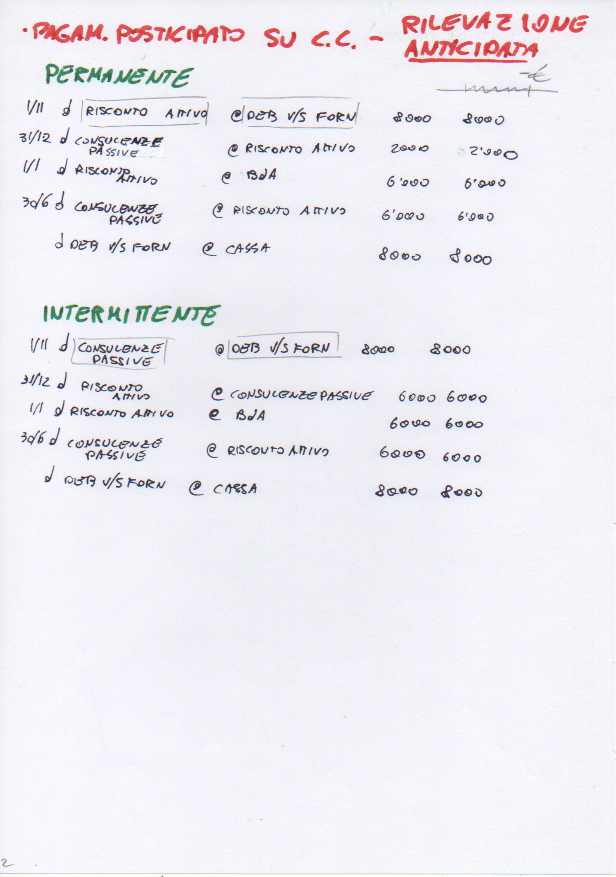 · PAGAM. POSTICIPATO SU C.C. - RILEVAZIONE
ANTICIPATA
PERMANENTE
-€
1/11 d RISCONTO ATTIVO @ DEB V/S FORN 8000 8000
31/12 d CONSULENZE PASSIVE @ RISCONTO ATTIVO 2000 2'000
1/1 d RISCONTO ATTIVO @ BdA 6'000 6'000
30/6 d CONSULENZE PASSIVE @ RISCONTO ATTIVO 6'000 6'000
d DEB V/S FORN @ CASSA 8000 8000
INTERMITTENTE
1/11 d CONSULENZE PASSIVE @ DEB V/S FORN 8000 8000
31/12 d RISCONTO ATTIVO @ CONSULENZE PASSIVE 6000 6000
1/1 d RISCONTO ATTIVO @ BdA 6000 6000
30/6 d CONSULENZE PASSIVE @ RISCONTO ATTIVO 6000 6000
d DEB V/S FORN @ CASSA 8000 8000
2